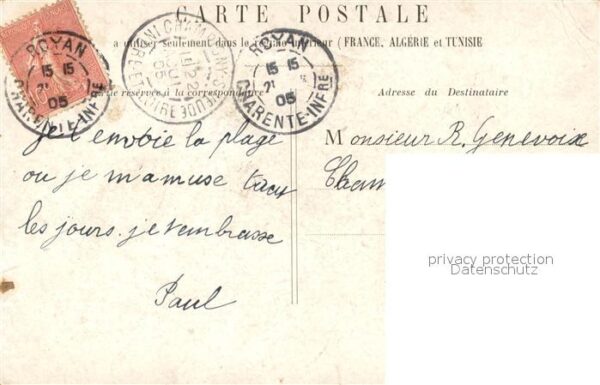 CARTE POSTALE
à utiliser seulement dans le régime intérieur (FRANCE, ALGÉRIE et TUNISIE
ROYAN
15 15
05
CHARENTE-INFRE
ROYAN
15 15
05
CHARENTE-INFRE
Partie réservée à la correspondance
Adresse du Destinataire
je t'envoie la plage
ou je m'amuse tous
les jours. je t'embrasse
Paul
Monsieur R. Genevoix
privacy protection
Datenschutz